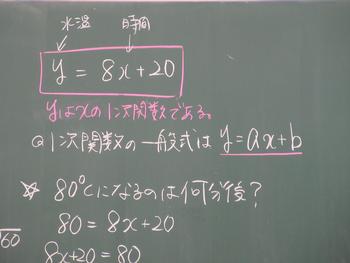 水温 時間
y = 8x+20
yはxの1次関数である。
◎1次関数の一般式は y=ax+b
☆ 80℃になるのは何分後?
80 = 8x+20
160
8x+20 = 80